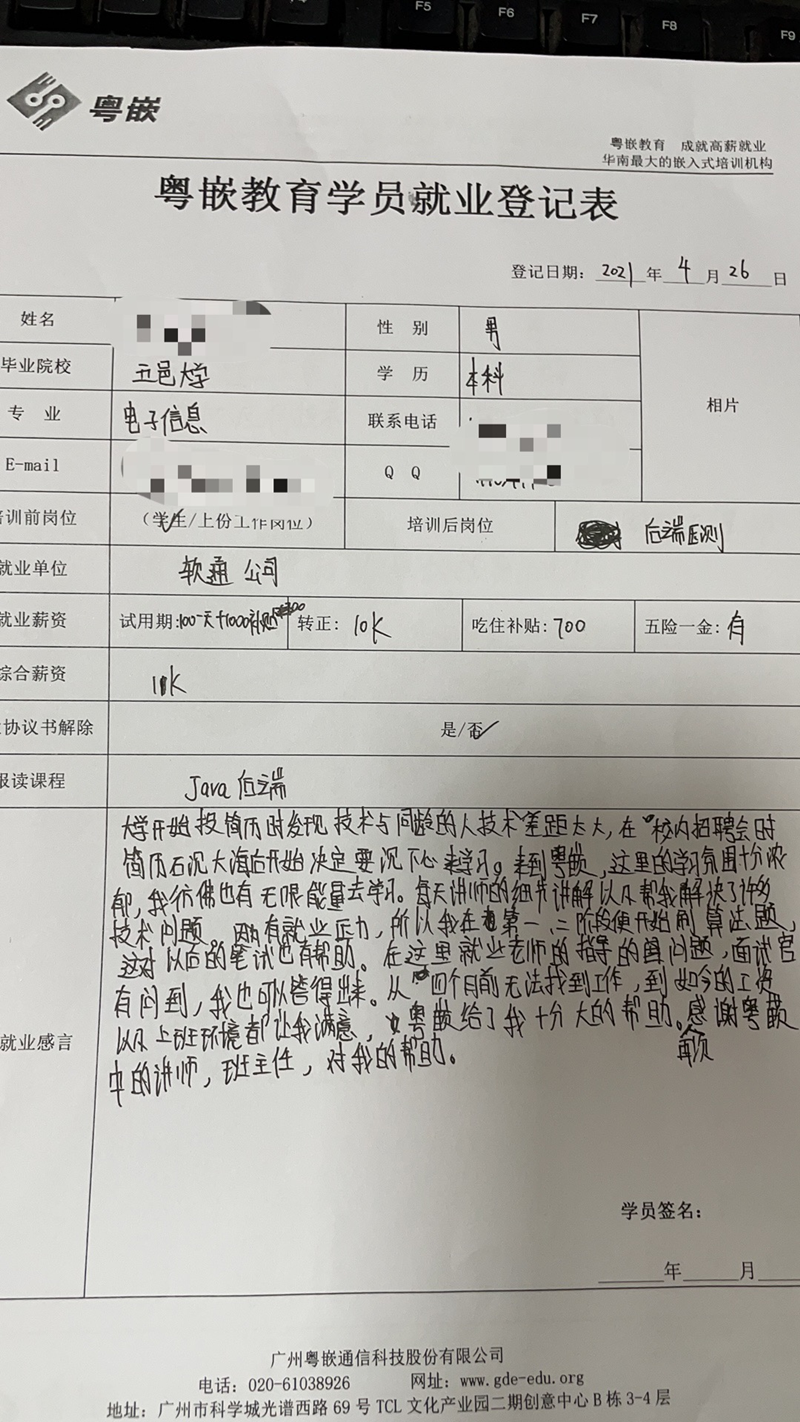 F5 F6 F7 F8 F9
粤嵌
粤嵌教育 成就高薪就业
华南最大的嵌入式培训机构
粤嵌教育学员就业登记表
登记日期: 2021 年 4 月 26 日
姓名 性 别 男
毕业院校 五邑大学 学 历 本科
相片
专 业 电子信息 联系电话
E-mail Q Q
培训前岗位 (学生/上份工作岗位) 培训后岗位 后端
就业单位 软通 公司
就业薪资 试用期:100一天+1000补贴 转正: 10K 吃住补贴: 700 五险一金: 有
综合薪资 11K
协议书解除 是/否
报读课程 Java 后端
就业感言
大学开始投简历时发现技术与同龄的人技术差距太大,在校内招聘会时
简历石沉大海后开始决定要沉下心来学习。来到粤嵌,这里的学习氛围十分浓
郁,我彷佛也有无限能量去学习。每天讲师的细节讲解以及帮我解决了许多
技术问题。因为有就业压力,所以我在第一、二阶段便开始刷算法题,
这对以后的笔试也有帮助。在这里就业老师的指导的问题,面试官
有问到,我也可以答得出来。从四个月前无法找到工作,到如今的工资
以及上班环境都让我满意,粤嵌给了我十分大的帮助。感谢粤嵌
中的讲师,班主任,对我的帮助。
学员签名:
年 月
广州粤嵌通信科技股份有限公司
电话: 020-61038926 网址: www.gde-edu.org
地址: 广州市科学城光谱西路 69 号 TCL 文化产业园二期创意中心 B 栋 3-4 层